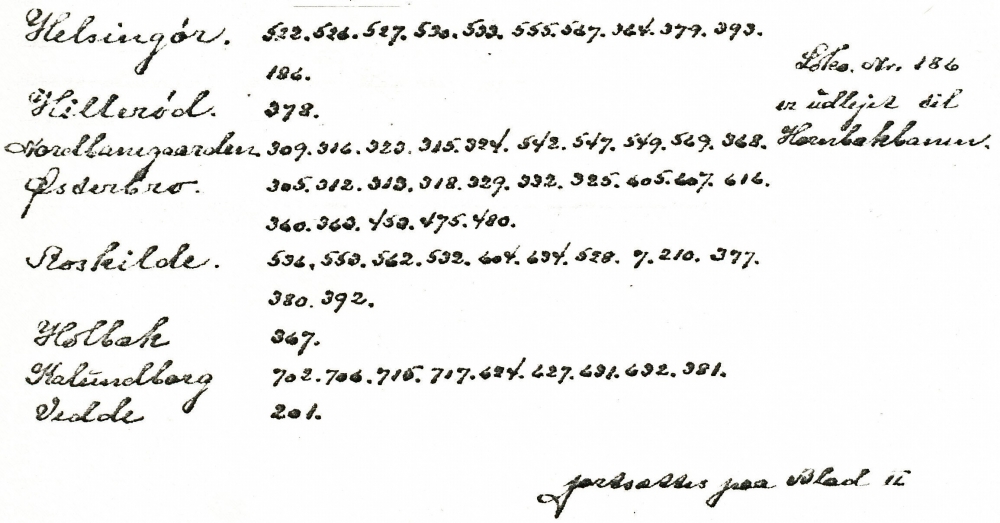 Helsingör. 522. 526. 527. 530. 533. 555. 567. 364. 379. 393.
186.
Loko. Nr. 186
er udlejet til
Hornbækbanen.
Hilleröd. 378.
Nordbanegaarden. 309. 316. 323. 315. 324. 542. 547. 549. 569. 368.
Østerbro. 305. 312. 313. 318. 329. 332. 325. 605. 607. 616.
360. 363. 453. 475. 480.
Roskilde. 536. 553. 562. 532. 604. 634. 528. 7. 210. 377.
380. 392.
Holbæk 367.
Kalundborg 702. 706. 715. 717. 624. 627. 631. 632. 381.
Vedde 201.
fortsættes paa Blad II